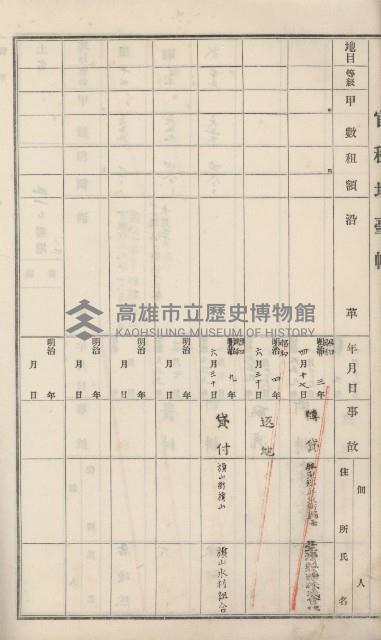 官租地臺帳
地目 等級 甲數 租額 沿革 年月日 事故 佃人 住所 氏名
昭和 三年 四月十七日 轉貸
昭和 四年 六月三十日 返地
昭和 九年 六月三十日 貸付 旗山街旗山 旗山水利組合
明治 年 月 日
明治 年 月 日
明治 年 月 日
明治 年 月 日
高雄市立歷史博物館
KAOHSIUNG MUSEUM OF HISTORY